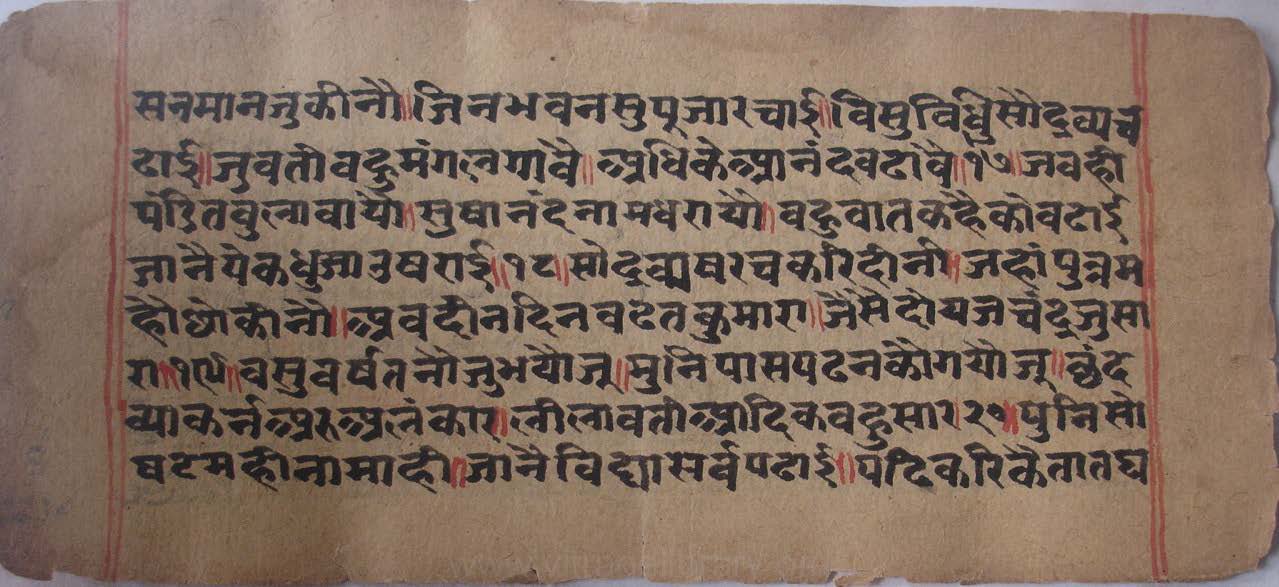 सनमानजुकीनौ॥जिनभवनसुपूजारचाई॥विसुविधिसौदव्यच
ढाई॥जुवतीवहुमंगलगावै॥अधिकेआनंदवढावै॥१७॥जवही
पंडितवुलावायौ॥सुषानंदनामधरायौ॥वहुवातकहैकोवढाई
जानैयेकधुजानुषराई॥१८॥सौदव्यषरचकरिदीनी॥जहांपुन्नम
हौछोकीनौ॥अवदीनदिनवढतकुमारा॥जैसैदोयजचंदजुसा
रा॥१९॥वसुवर्षतनौजुभयौजू॥मुनिपासपढनकौगयौजू॥छंद
व्याकर्नअरुअलंकार॥लीलावतीआदिकवहुसार॥२०॥पुनिसो
षटमहीनामाही॥जानैविद्यासर्वपढाई॥पढिकरिकैतातघ